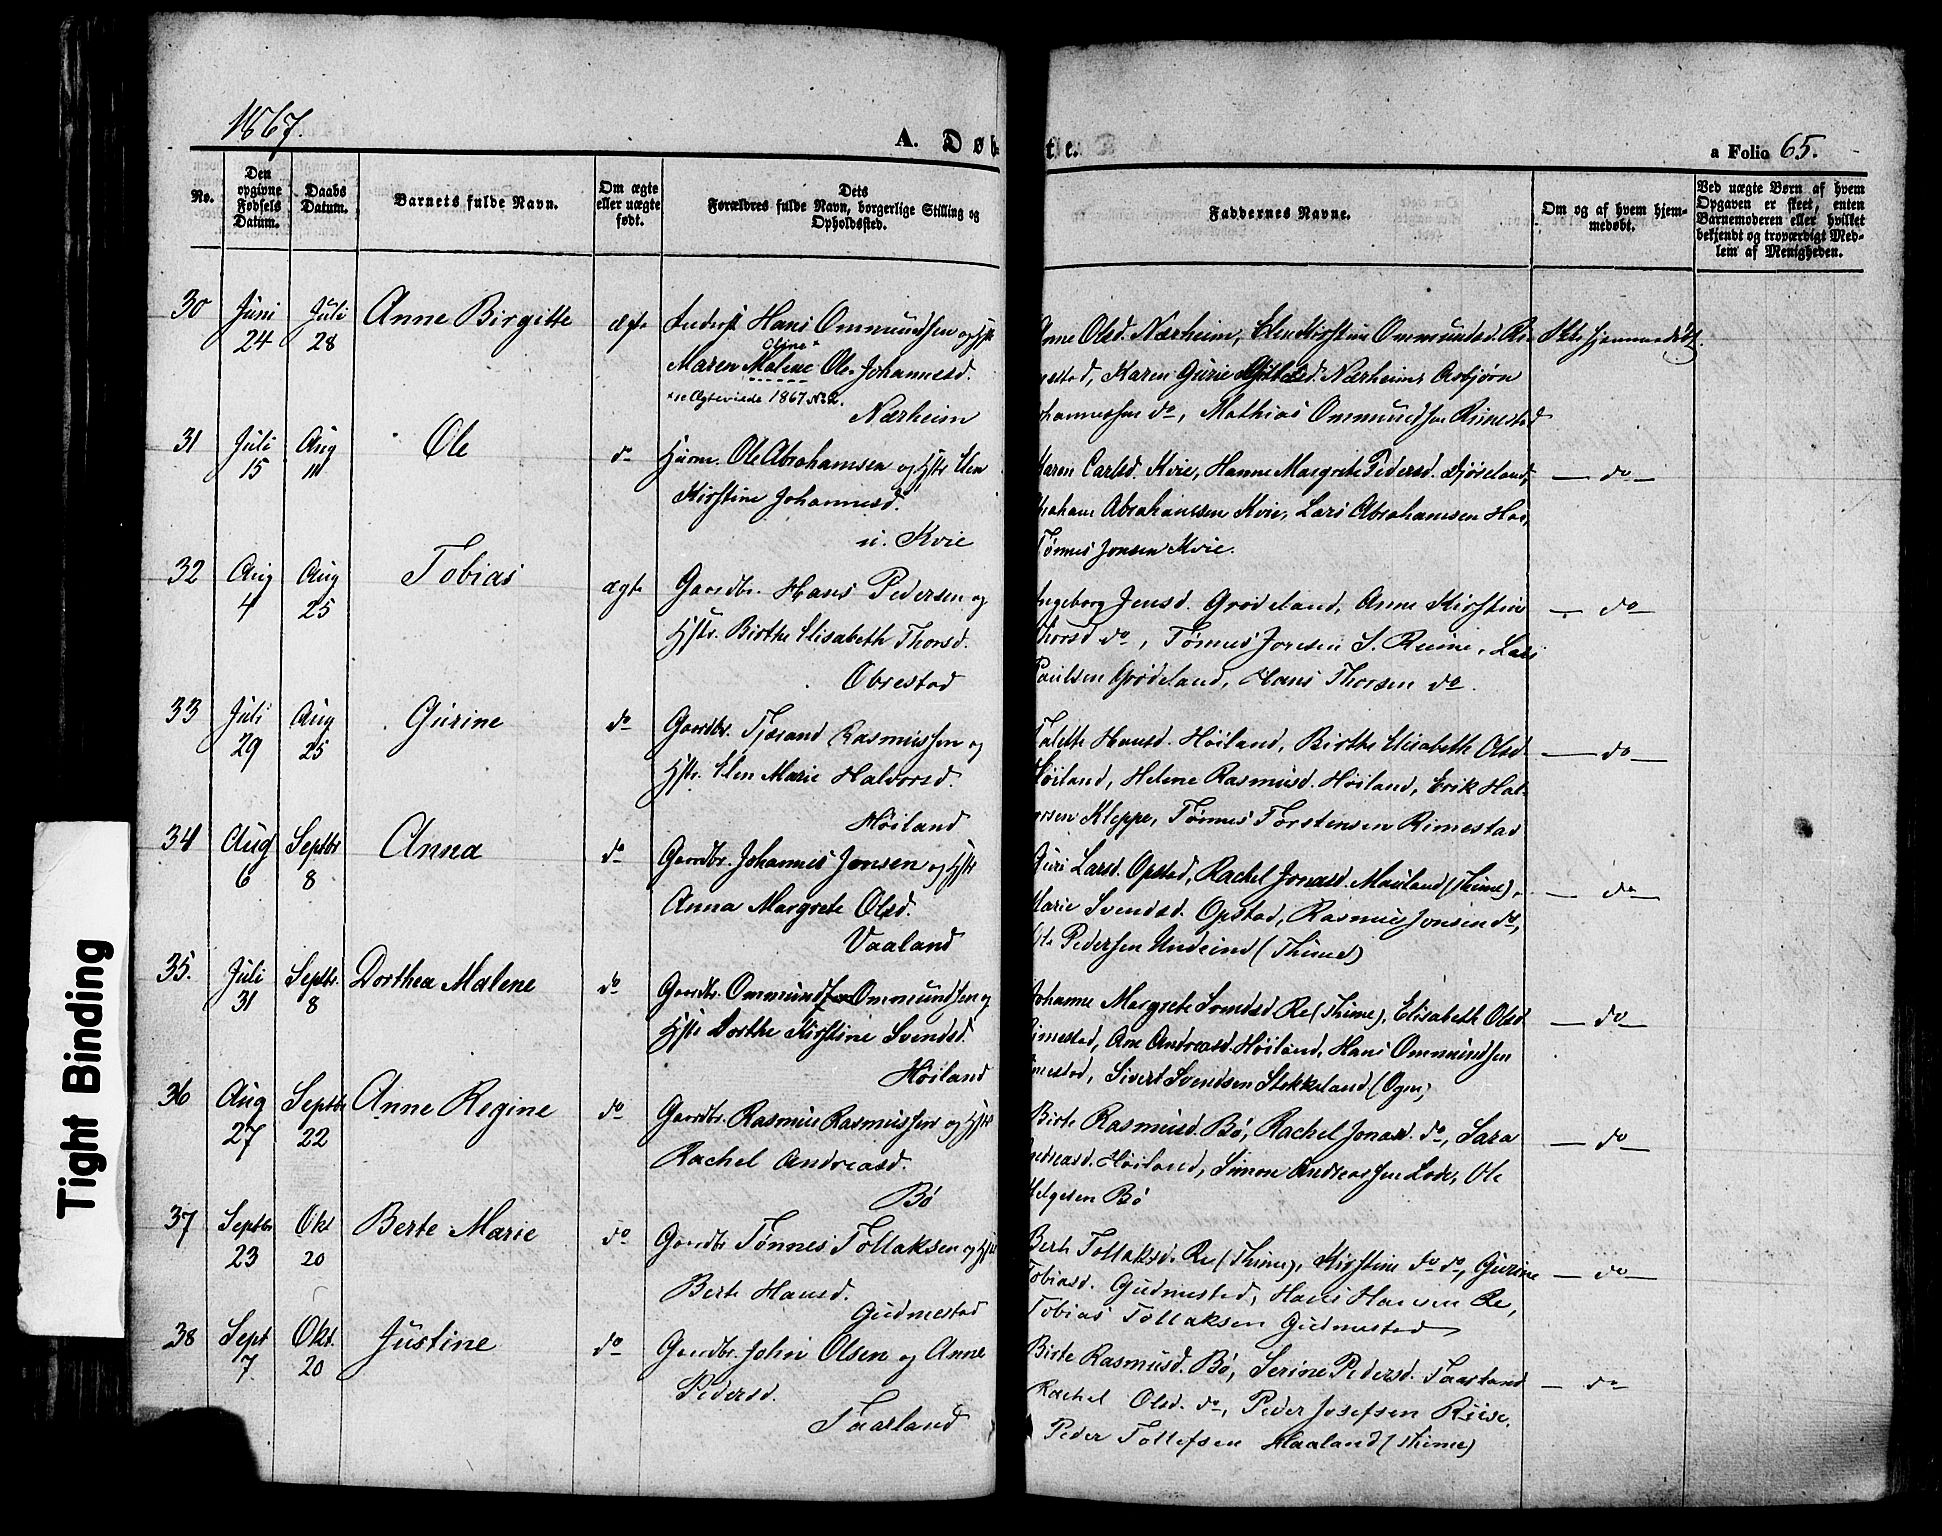 1867.
A. Døbte.
a Folio 65.
No.
Den opgivne Fødsels Datum.
Daabs Datum.
Barnets fulde Navn.
Om ægte eller uægte født.
Dets Forældres fulde Navn, borgerlige Stilling og Opholdssted.
Faddernes Navne.
Om og af hvem hjemmedøbt.
Ved uægte Børn af hvem Opgaven er skeet, enten Barnemoderen eller hvilket bekjendt og troværdigt Medlem af Menigheden.
30 Juni 24 Juli 28 Anne Birgitte ægte
Hans Ommundsen og Hst
Oline
Maren Malene Ole Johannesd.
Ægteviede 1867 No 2.
Nærheim
Anne Olsd. Nærheim, Elen Kirstine Ommundsd. Ri-
mestad, Karen Gurie Nærheim, Asbjørn
Johannessen do, Mathias Ommundsen Rimestad
Ikke hjemmedøbt.
31 Juli 15 Aug 11 Ole do
Huusm. Ole Abrahamsen og Hst Elen
Kirstine Johannesd.
u. Kvie
Karen Carlsd. Kvie, Hanne Margrete Pedersd.
Abrahamsen Kvie, Lars Abrahamsen
Tønnes Jonsen Kvie.
— do —
32 Aug 4 Aug 25 Tobias ægte
Gaardbr. Hans Pedersen og
Hstr. Birthe Elisabeth Thorsd.
Obrestad
Ingeborg Jensd. Grødeland, Anne Kirstine
Thorsd do, Tønnes S. Reime, Lars
Paulsen Grødeland, Hans Thorsen do.
— do —
33 Juli 29 Aug 25 Gurine do
Gaardbr. Tjerand Rasmussen og
Hstr. Elen Marie Halvorsd.
Høiland
Talette Hansd. Høiland, Birthe Elisabeth Olsd
Høiland, Helene Rasmusd. Høiland, Erik Hal-
vorsen Kleppe, Tønnes Torstensen Rimestad
— do —
34 Aug 6 Septbr 8 Anna do
Gaardbr. Johannes Jonsen og Hst
Anna Margrete Olsd.
Vaaland
Guri Larsd. Opstad, Rachel Jonasd. Mauland (Thime),
Marie Svendsd. Opstad, Rasmus Jonsen do,
Ole Pedersen Undeim (Thime)
— do —
35. Juli 31 Septbr. 8 Dorthea Malene do
Gaardbr. Ommund Ommundsen og
Hst Dorthe Kirstine Svendsd.
Høiland
Johanne Margrete Svendsd Re (Thime), Elisabeth Olsd
Rimestad, Ane Andreasd. Høiland, Hans Ommundsen
Rimestad, Sivert Svendsen Stokkeland (Ogn)
— do —
36 Aug 27 Septbr 22 Anne Regine do
Gaardbr. Rasmus Rasmussen og Hst
Rachel Andreasd.
Bø
Birte Rasmusd. Bø, Rachel Jonasd. do, Sara
Andreasd. Høiland, Simon Andreassen Lode, Ole
Helgesen Bø
— do —
37 Septbr 23 Okt 20 Berte Marie do
Gaardbr Tønnes Tollaksen og Hst
Berte Hansd.
Gudmestad
Berte Tollaksd. Re (Thime), Kirstine do do, Gurine
Tobiasd. Gudmestad, Hans Hansen Re,
Tobias Tollaksen Gudmestad
— do —
38 Sept 7. Okt. 20 Justine do
Gaardbr. John Olsen og Anne
Pedersd.
Taarland
Birte Rasmusd. Bø, Serine Pedersd. Taarland
Rachel Olsd. do, Peder Josefsen
Peder Tollefsen Haaland (Thime)
— do —
Tight Binding